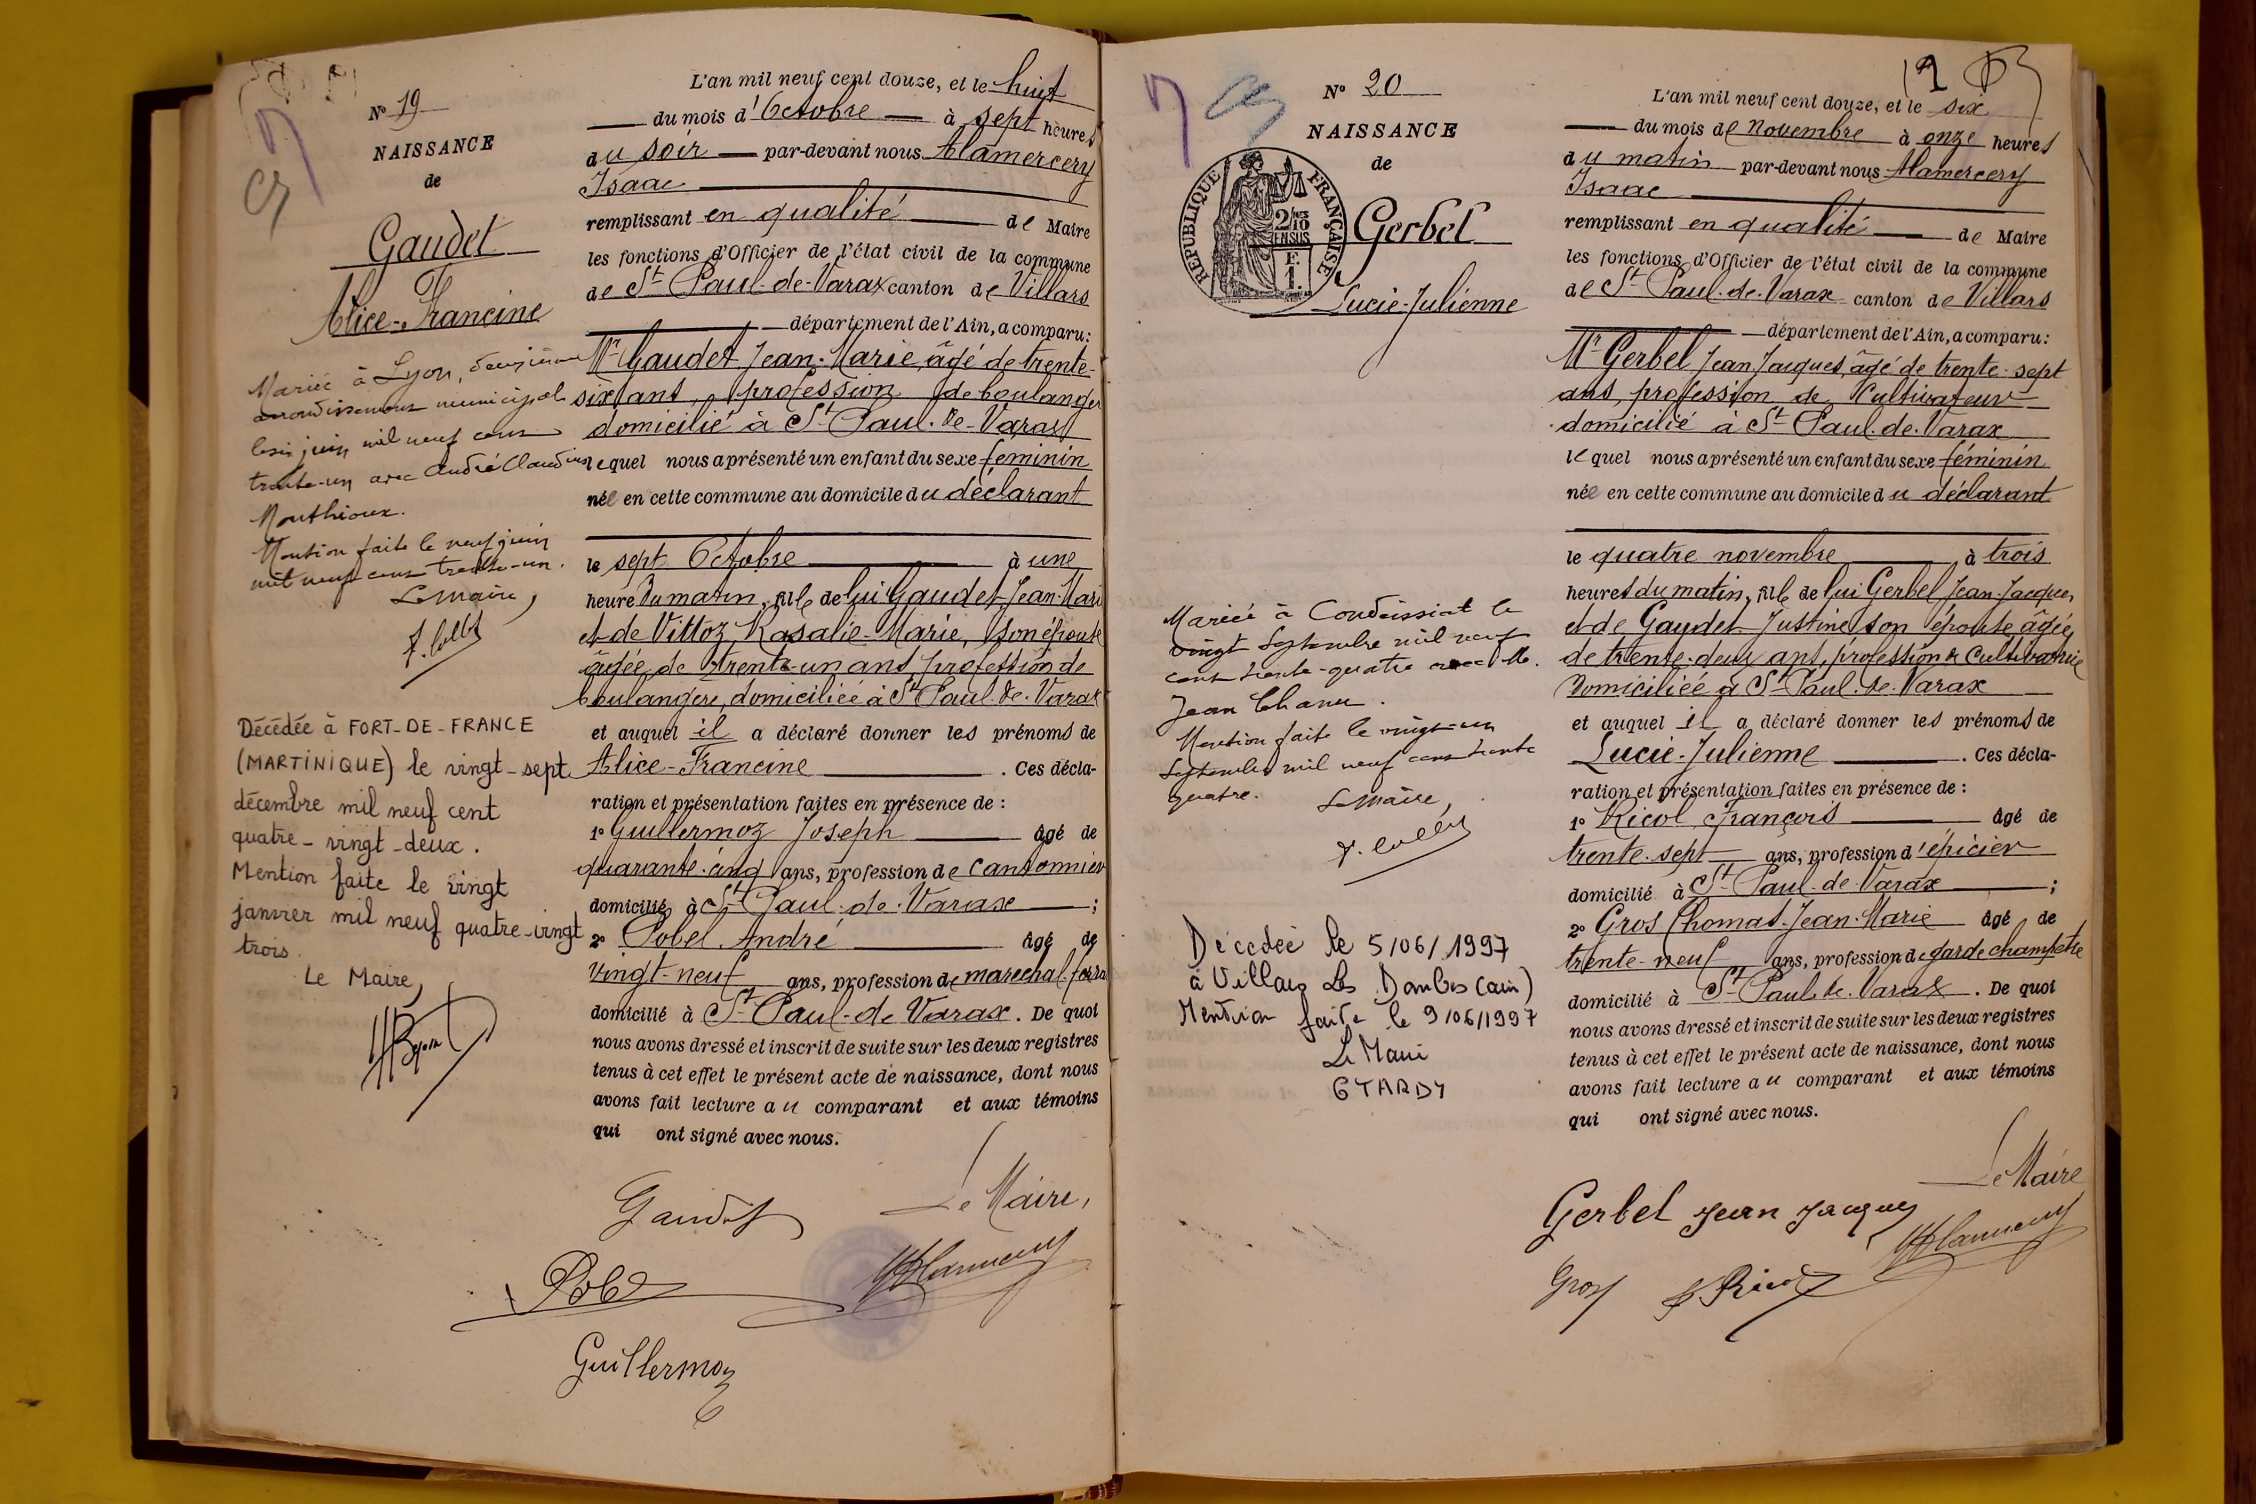 Nº 19
NAISSANCE
de
Gaudet
Alice-Francine
Mariée à Lyon, deuxième
arrondissement municipal
le six juin mil neuf cent
trente-un avec André Claudius
Monthioux.
Mention faite le neuf juin
mil neuf cent trente-un.
Le Maire,
Décédée à FORT-DE-FRANCE
(MARTINIQUE) le vingt-sept
décembre mil neuf cent
quatre-vingt-deux.
Mention faite le vingt
janvier mil neuf quatre-vingt
trois.
Le Maire,
L'an mil neuf cent douze, et le huit
du mois d'Octobre à sept heures
du soir par-devant nous Alamercery
Isaac
remplissant en qualité de Maire
les fonctions d'Officier de l'état civil de la commune
de St Paul-de-Varax canton de Villars
département de l'Ain, a comparu:
Mr Gaudet Jean-Marie, âgé de trente-
six ans, profession de boulanger
domicilié à St Paul-de-Varax
lequel nous a présenté un enfant du sexe féminin
née en cette commune au domicile du déclarant
le sept Octobre à une
heure du matin, fille de lui Gaudet Jean-Marie
et de Vittoz Rosalie-Marie, son épouse
âgée de trente-un ans, profession de
boulangère, domiciliée à St Paul-de-Varax
et auquel il a déclaré donner les prénoms de
Alice-Francine. Ces décla-
ration et présentation faites en présence de :
1º Guillermoz Joseph âgé de
quarante-cinq ans, profession de cantonnier
domicilié à St Paul-de-Varax ;
2º Pobel André âgé de
vingt-neuf ans, profession de maréchal-ferra
domicilié à St Paul-de Varax. De quoi
nous avons dressé et inscrit de suite sur les deux registres
tenus à cet effet le présent acte de naissance, dont nous
avons fait lecture au comparant et aux témoins
qui ont signé avec nous.
Le Maire,
Gaudet
Pobel
Alamercery
Guillermoz
Nº 20
NAISSANCE
de
RÉPUBLIQUE FRANÇAISE
2/10 EN SUS
F. 1.
Gerbel
Lucie-Julienne
Mariée à Condeissiat le
vingt Septembre mil neuf
cent trente-quatre avec M.
Jean Chanu.
Mention faite le vingt-un
Septembre mil neuf cent trente
quatre.
Le Maire,
Décédée le 5/06/1997
à Villars Les Dombes (ain)
Mention faite le 9/06/1997
Le Maire
G TARDY
L'an mil neuf cent douze, et le six
du mois de Novembre à onze heures
du matin par-devant nous Alamercery
Isaac
remplissant en qualité de Maire
les fonctions d'Officier de l'état civil de la commune
de St Paul-de-Varax canton de Villars
département de l'Ain, a comparu:
Mr Gerbel Jean Jacques, âgé de trente-sept
ans, profession de Cultivateur
domicilié à St Paul-de-Varax
lequel nous a présenté un enfant du sexe féminin
née en cette commune au domicile du déclarant
le quatre novembre à trois
heures du matin, fille de lui Gerbel Jean-Jacques,
et de Gaudet Justine son épouse âgée
de trente-deux ans, profession de Cultivatrice
domiciliée à St Paul-de-Varax
et auquel il a déclaré donner les prénoms de
Lucie-Julienne. Ces décla-
ration et présentation faites en présence de :
1º Ricol François âgé de
trente-sept ans, profession d'épicier
domicilié à St Paul-de-Varax ;
2º Gros Thomas-Jean-Marie âgé de
trente-neuf ans, profession de garde champêtre
domicilié à St Paul-de-Varax. De quoi
nous avons dressé et inscrit de suite sur les deux registres
tenus à cet effet le présent acte de naissance, dont nous
avons fait lecture au comparant et aux témoins
qui ont signé avec nous.
Le Maire
Gerbel Jean Jacques
Alamercery
Gros